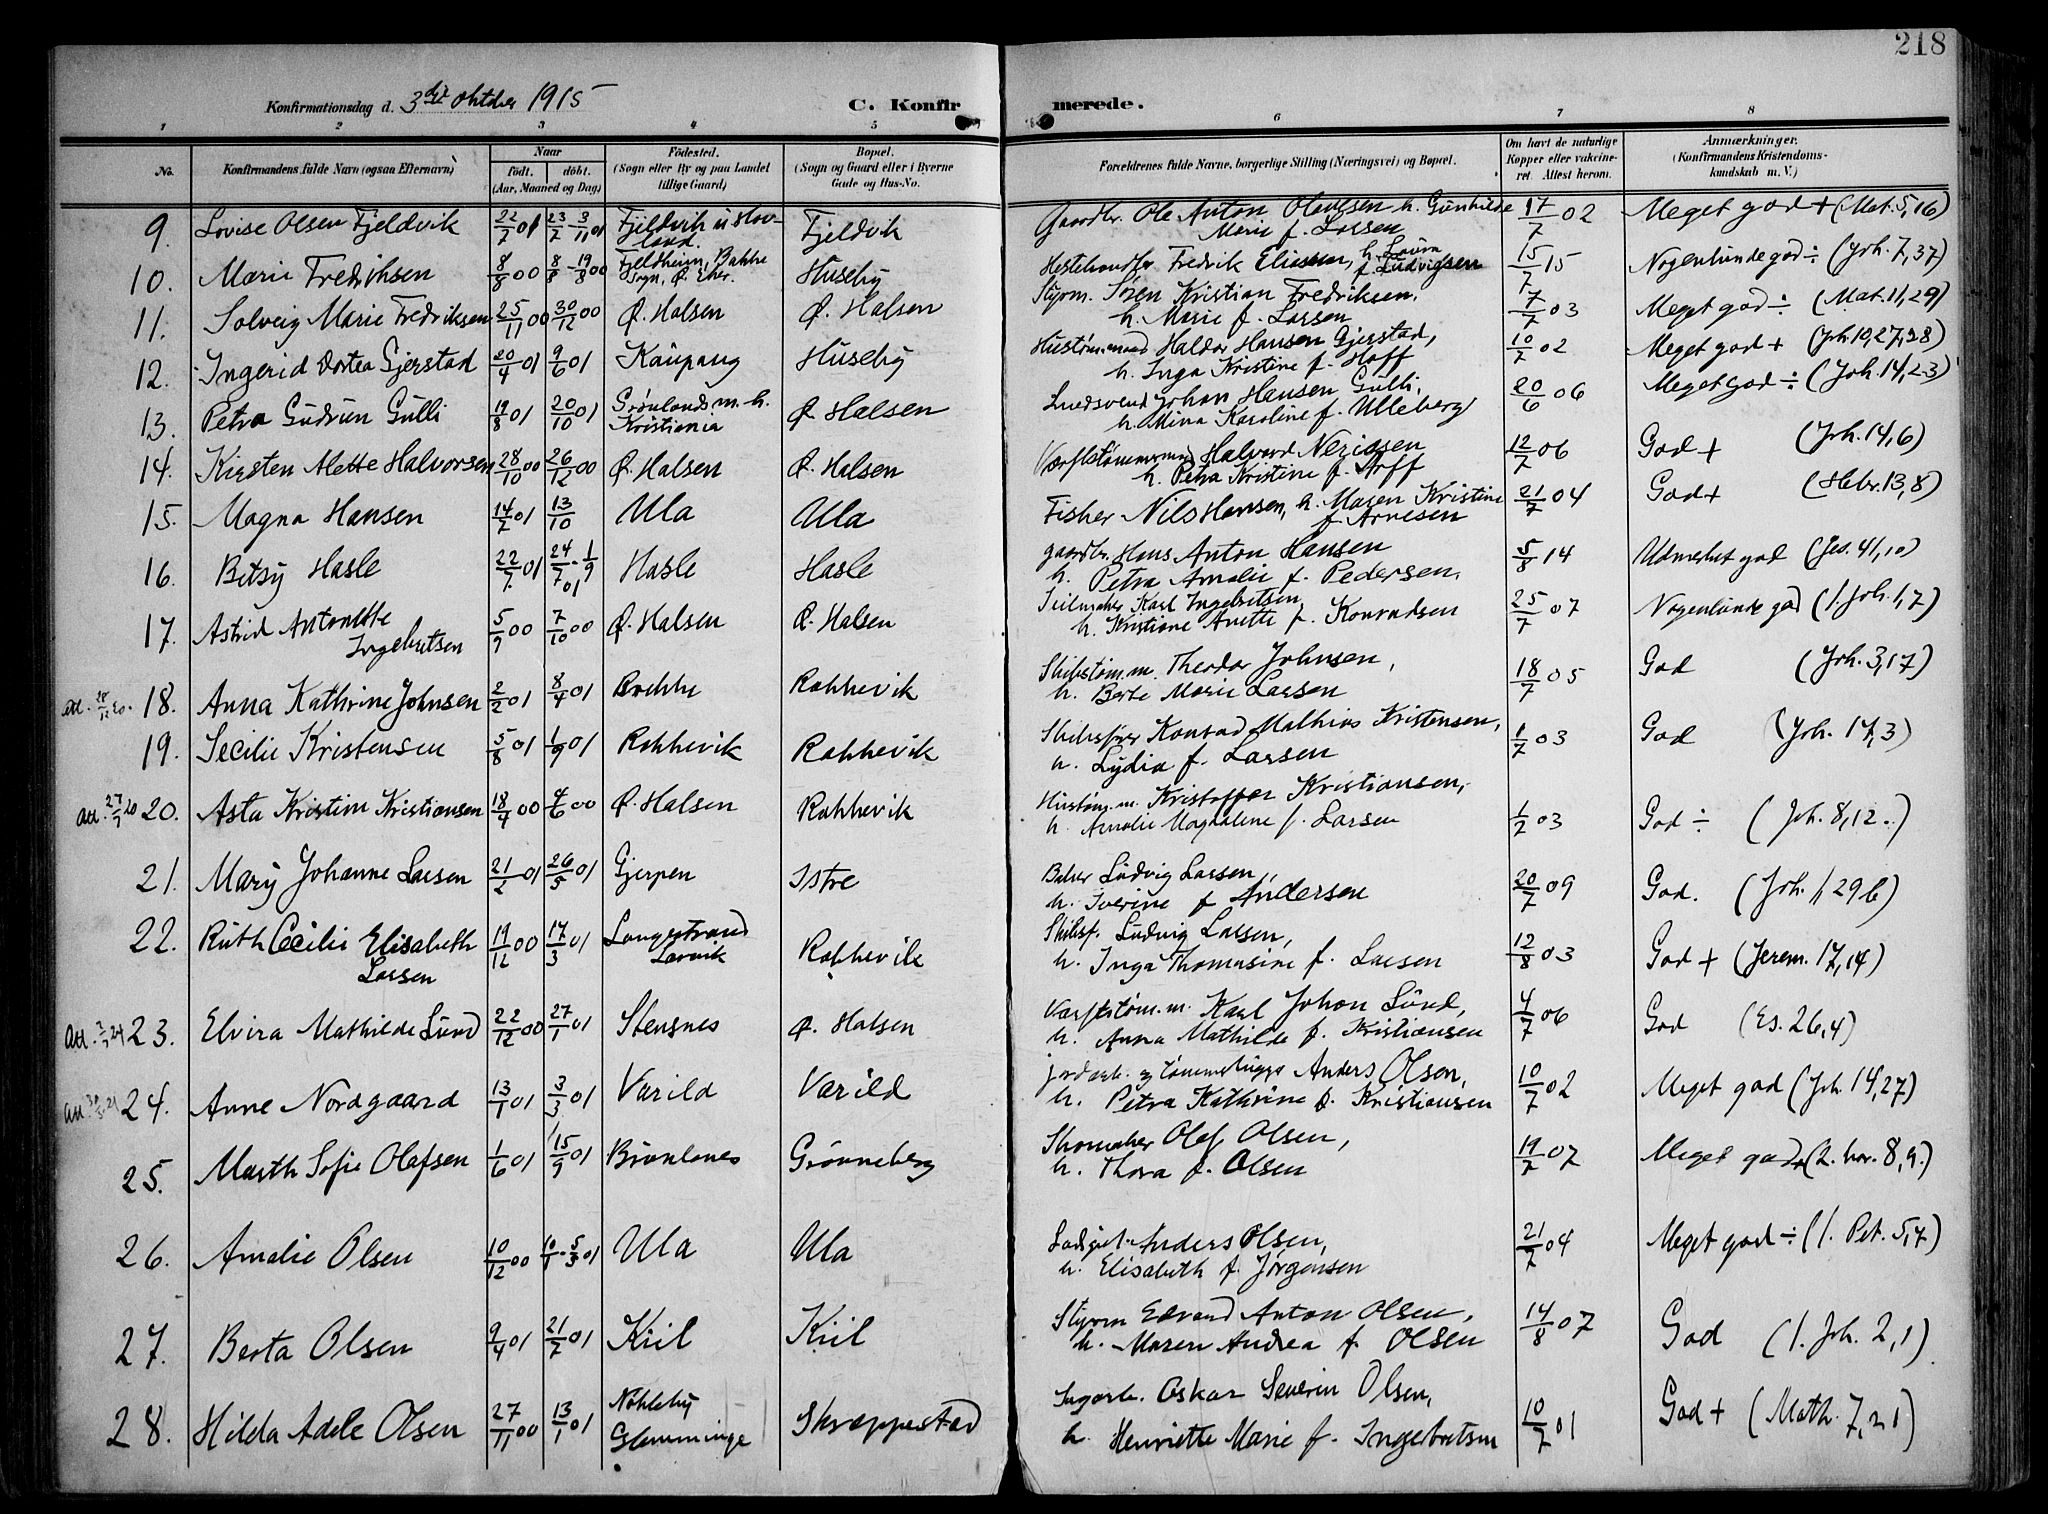 218
Konfirmationsdag d. 3die oktober 1915 C. Konfirmerede.
1 2 3 4 5 6 7 8
No. Konfirmandens fulde Navn (ogsaa Efternavn) Naar født. døbt. (Aar, Maaned og Dag) Fødested. (Sogn eller By og paa Landet tillige Gaard) Bopæl. (Sogn og Gaard eller i Byerne Gade og Hus-No. Forældrenes fulde Navne, borgerlige Stilling (Næringsvei) og Bopæl. Om havt de naturlige Kopper eller vaccineret. Attest herom. Anmærkninger. (Konfirmandens Kristendomskundskab m. V.)
9. Lovise Olsen Fjeldvik 22/7 01 23/7 - 3/11 01 Fjeldvik Fjeldvik Gaardbr. Ole Anton Olaussen h. Gunhilde Marie f. Larsen 17/7 02 Meget god + (Mat. 5,16)
10. Marie Fredriksen 8/8 00 8/8 - 19/8 00 Feldheim, Bakke Sogn, Ø. Eker. Huseby Hestehandler Fredrik Eliassen, h. Laura f. Ludvigsen 15/7 15 Nogenlunde god ÷ (Joh. 7,37)
11. Solveig Marie Fredriksen 25/11 00 30/12 00 Ø. Halsen Ø. Halsen Styrm. Søren Kristian Fredriksen, h. Marie f. Larsen 7/7 03 Meget god ÷ (Mat. 11,29)
12. Ingerid Dortea Gjerstad 20/4 01 9/6 01 Kaupang Huseby Hustømmermand Haldor Hansen Gjerstad, h. Inga Kristine f. Hoff 10/7 02 Meget god + (Joh. 10,27,28)
13. Petra Gudrun Gulli 19/8 01 20/10 01 Grønlands m.h. Kristiania Ø Halsen Smedsvend Johan Hansen Gulli, h. Mina Karoline f. Ulleberg 20/6 06 Meget god ÷ (Joh. 14,23)
14. Kirsten Alette Halvorsen 28/10 00 26/12 00 Ø. Halsen Ø. Halsen h. Petra Kristine f. 12/7 06 God + (Joh. 14,6)
15. Magna Hansen 14/7 01 13/10 Ula Ula Fisker Nils Hansen, h. Maren Kristine f. Arnesen 21/7 04 God + (Hebr. 13,8)
16. Betsy Hasle 22/7 01 24/7 - 1/9 01 Hasle Hasle gaardbr. Hans Anton Hansen h. Petra Amalie f. Pedersen. 5/8 14 Udmerket god (Jes. 41,10)
17. Astrid Antonette Ingebretsen 5/9 00 7/10 00 Ø. Halsen Ø. Halsen Seilmaker Karl Ingebretsen h. Kristiane Anette f. Konradsen 25/7 07 Nogenlunde god (1. Joh. 1,7)
18. Anna Kathrine Johnsen 2/2 01 8/4 01 Brekke Rakkevik Skibstømm. Theodor Johnsen, h. Berte Marie Larsen 18/7 05 God (Joh. 3,17)
19. Secilie Kristensen 5/8 01 1/9 01 Rakkevik Rakkevik Skibsfører Konrad Mathias Kristensen, h. Lydia f. Larsen 1/7 03 God (Joh. 17,3)
Att. 27/7 20 20. Asta Kristine Kristiansen 18/4 00 4/6 00 Ø. Halsen Rakkevik Hustøm.m. Kristoffer Kristiansen, h. Amalie Magdalene f. Larsen 1/7 03 God ÷ (Joh. 8,12.)
21. Mary Johanne Larsen 21/2 01 26/5 01 Gjerpen Istre Baker Ludvig Larsen, h. Iverine f Andersen 20/7 09 God. (Joh. 1,29b)
22. Ruth Cecilie Elisabeth Larsen 19/12 00 17/3 01 Langestrand Larvik Rakkevik Skibsf. Ludvig Larsen, h. Inga Thomasine f. Larsen 12/8 03 God + (Jerem. 17,14)
23. Elvira Mathilde Lund 22/12 00 27/1 01 Stensnes Ø. Halsen Værftstøm.m. Karl Johan Lund, h. Anna Mathilde f. Kristiansen 4/7 06 God (Es. 26,4)
24. Anne Nordgaard 13/1 01 3/3 01 Varild Varild jordarb. og tømmerhugg. Anders Olsen, h. Petra Kathrine f. Kristiansen 10/7 02 Meget god (Joh. 14,27)
25. Marth Sofie Olafsen 1/6 01 15/9 01 Brunlanes Grønneberg Skomaker Olaf Olsen, h. Thora f. Olsen 19/7 07 Meget god (2. kor. 8,9.)
26. Amalie Olsen 10/12 00 10/1 - 5/3 01 Ula Ula Anders Olsen, h. Elisabeth f. Jørgensen 21/7 04 Meget god ÷ (1. Pet. 5,7)
27. Berta Olsen 9/4 01 21/7 01 Kiil Kiil Styrm Edvard Anton Olsen, h. Maren Andrea f. Olsen 14/8 07 God (1. Joh. 2,1)
28. Hilda Adele Olsen 27/11 00 13/1 01 Nokleby Glemminge Skræppestad Oskar Severin Olsen, h. Henriette Marie f. Ingebretsen 10/7 01 God + (Math. 7,21)